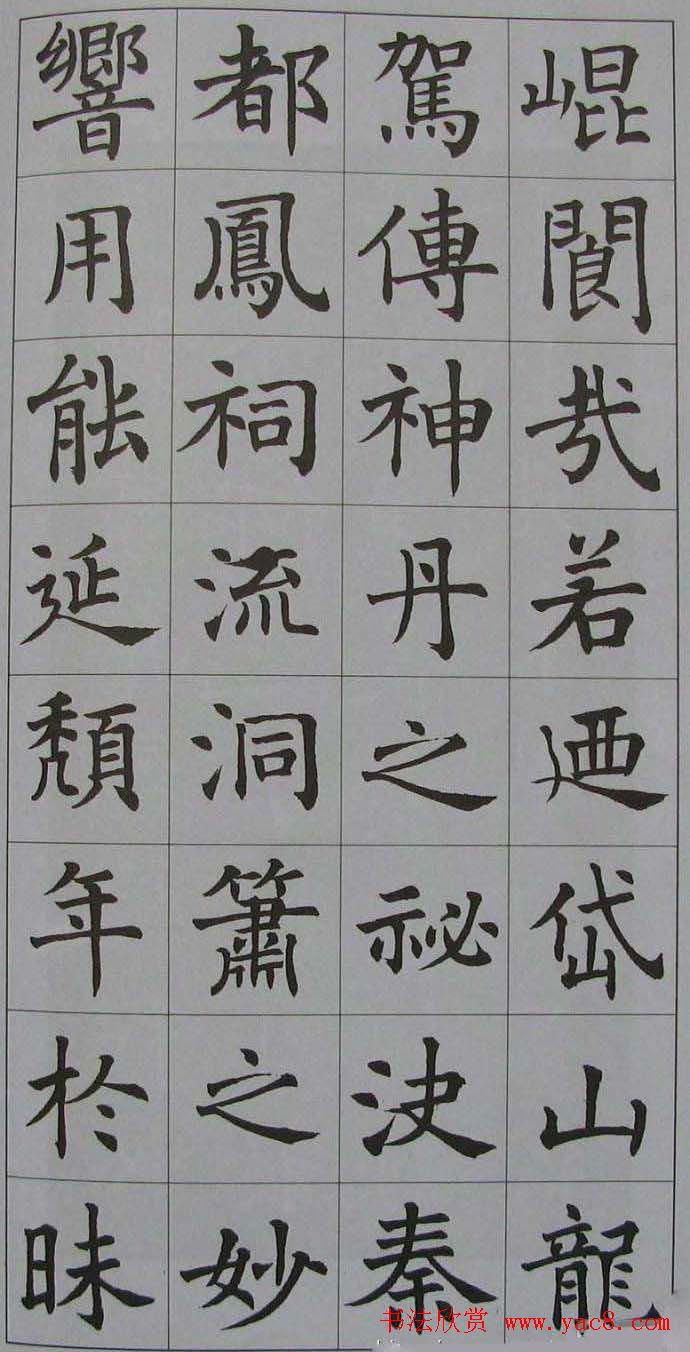 崐閬㢤若迺岱山龍
駕傳神丹之祕決秦
都鳳祠流洞簫之妙
響用能延頹年於昧
书法欣赏 www.yac8.com